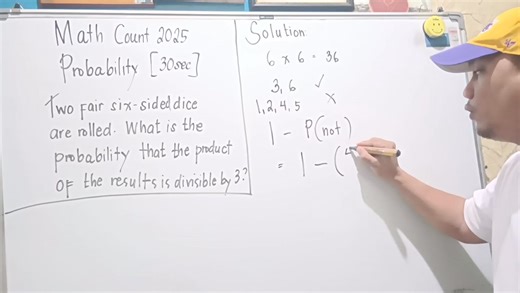 Math Count 2025
Probability [30sec]
Two fair six-sided dice
are rolled. What is the
probability that the product
of the results is divisible by 3?
Solution
6 x 6 = 36
3, 6 ✓
1, 2, 4, 5 x
1 - P(not)
= 1 - (4